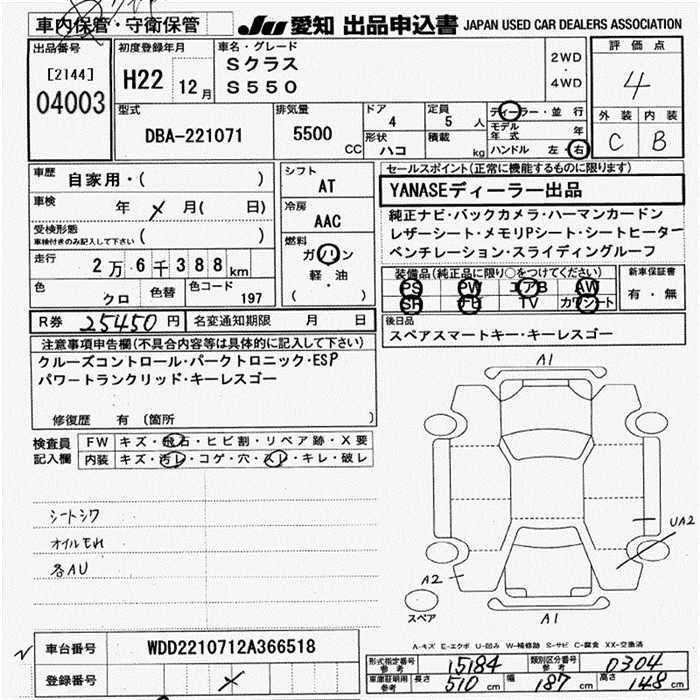 車内保管・守衛保管
JU 愛知 出品申込書 JAPAN USED CAR DEALERS ASSOCIATION
出品番号
[2144]
04003
初度登録年月
H22 12月
車名・グレード
Sクラス
S550
2WD
・
4WD
評価点
4
外装 内装
C B
型式
DBA-221071
排気量
5500
CC
ドア
4
定員
5 人
形状
ハコ
積載
kg
ディーラー・並行
モデル年式 年
ハンドル 左・右
車歴
自家用・( )
車検 年 月( 日)
受検形態
車検付きのみ記入して下さい ( )
走行
2万6千388km
色
クロ
色替
色コード
197
シフト
AT
冷房
AAC
燃料
ガソリン
軽・油
( )
セールスポイント(正常に機能するものに限ります)
YANASEディーラー出品
純正ナビ・バックカメラ・ハーマンカードン
レザーシート・メモリPシート・シートヒーター
ベンチレーション・スライディングルーフ
装備品(純正品に限り○をつけてください)
PS PW エアB AW
SR TV カワシート
新車保証書
有・無
後日品
スペアスマートキー・キーレスゴー
R券 25450円 名変通知期限 月 日
注意事項申告欄(不具合内容等は具体的に記入して下さい)
クルーズコントロール・パークトロニック・ESP
パワートランクリッド・キーレスゴー
修復歴 有 (箇所 )
検査員記入欄
FW キズ・飛石・ヒビ割・リペア跡・X要
内装 キズ・汚レ・コゲ・穴・スレ・キレ・破レ
シートシワ
オイルモれ
各AU
A1
UA2
A2
スペア
A1
A-キズ E-エクボ U-凹み W-補修跡 S-サビ C-腐食 XX-交換済
車台番号 WDD2210712A366518
登録番号
形式指定番号
参考 15184
類別区分番号
参考 0304
車庫証明用
参考 長さ 510cm 幅 187cm 高さ 148cm